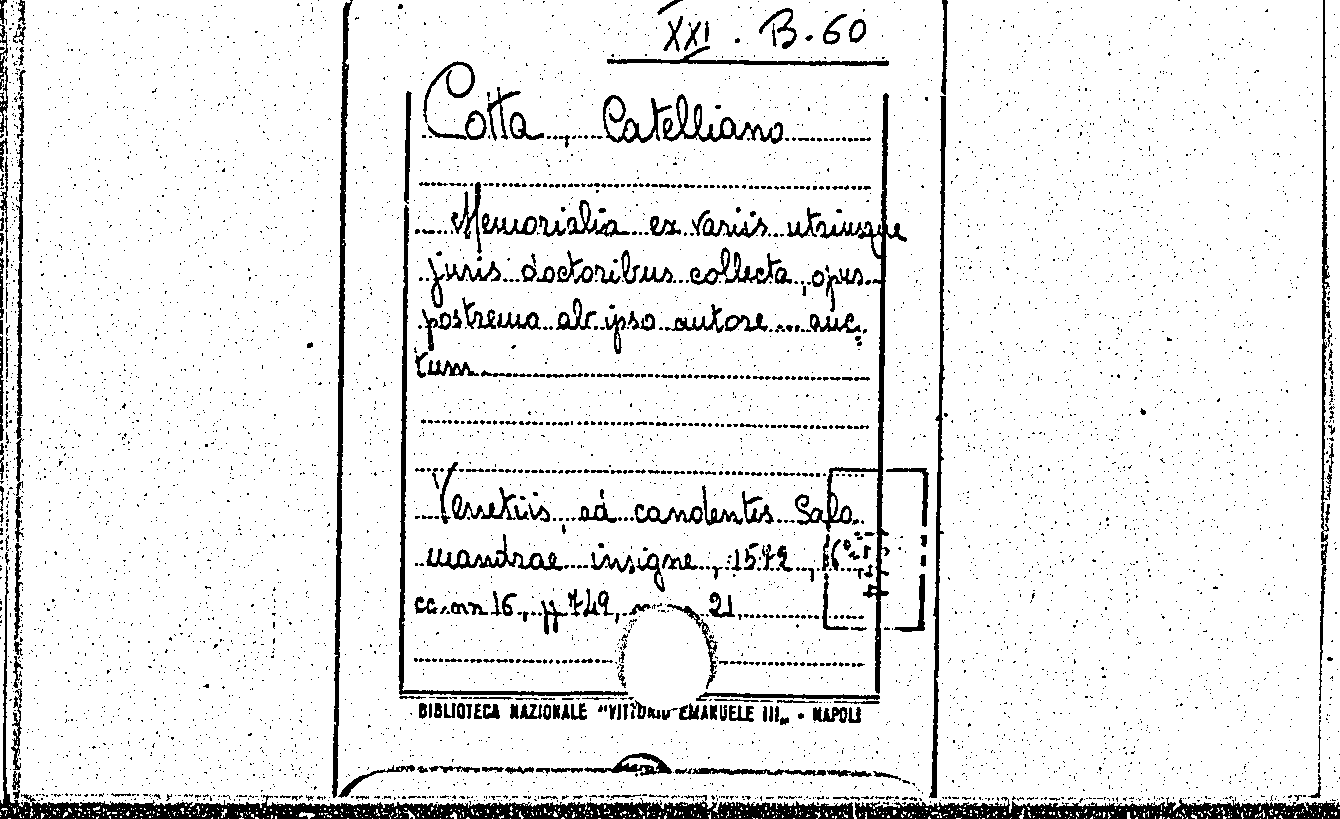 XXI. B. 60
Cotta, Catelliano
Memorialia ex variis utriusque
juris doctoribus collecta, opus
postremo ab ipso autore ... auc.
tum.
Venetiis, ad candentis Sala
mandrae insigne, 1572, 16°
cc. nn 16, pp 749, 21
BIBLIOTECA NAZIONALE "VITTORIO EMANUELE III„ - NAPOLI